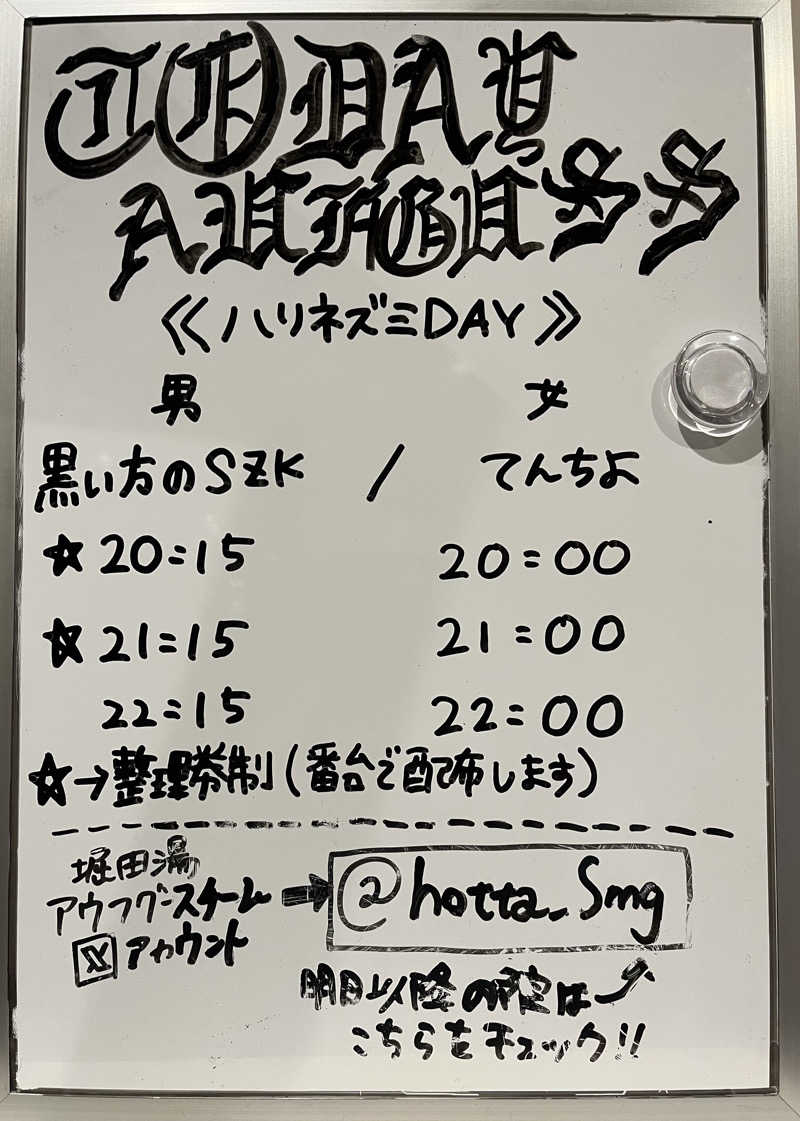 TODAY
AUFGUSS
≪ハリネズミDAY≫
男 女
黒い方のSZK / てんちょ
☆20:15 20:00
☆21:15 21:00
22:15 22:00
☆→整理券制(番台で配布します)
堀田湯
アウフグースチーム → @hotta_Smg
X アカウント
明日以降の予定は
こちらをチェック!!